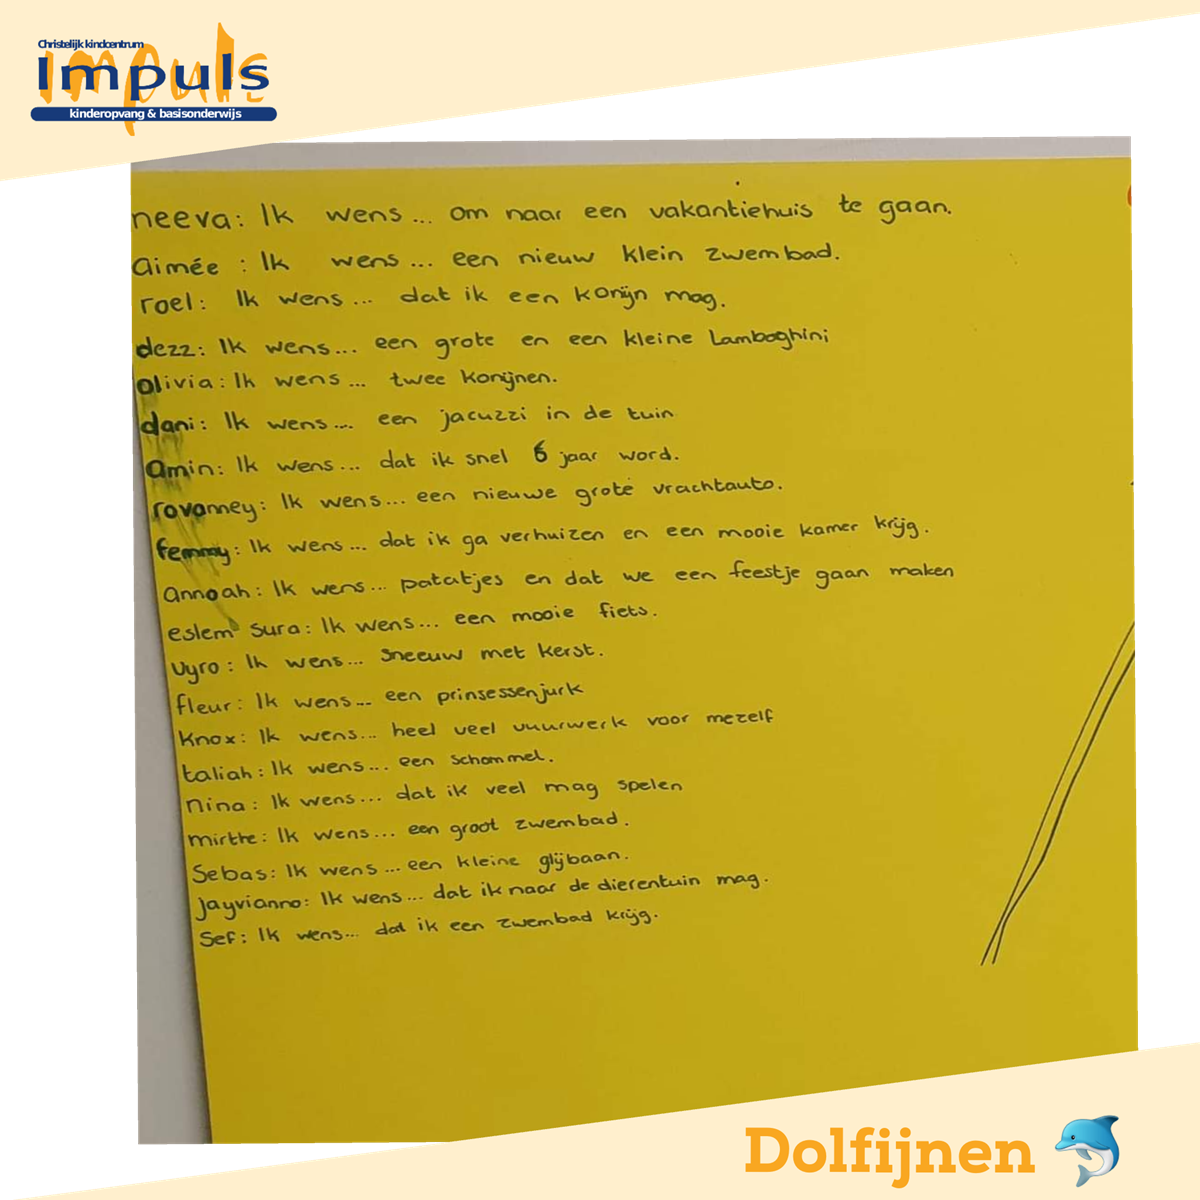 Christelijk kindcentrum
Impuls
kinderopvang & basisonderwijs
neeva: Ik wens... om naar een vakantiehuis te gaan.
aimée : Ik wens... een nieuw klein zwembad.
roel: Ik wens... dat ik een konijn mag.
dezz: Ik wens... een grote en een kleine Lamboghini
olivia: Ik wens... twee konijnen.
dani: Ik wens... een jacuzzi in de tuin
amin: Ik wens... dat ik snel 6 jaar word.
rovanney: Ik wens... een nieuwe grote vrachtauto.
femmy: Ik wens... dat ik ga verhuizen en een mooie kamer krijg.
annoah: Ik wens... patatjes en dat we een feestje gaan maken
eslem sura: Ik wens... een mooie fiets.
vyro: Ik wens... sneeuw met kerst.
fleur: Ik wens... een prinsessenjurk
Knox: Ik wens... heel veel vuurwerk voor mezelf
taliah: Ik wens... een schommel.
nina: Ik wens... dat ik veel mag spelen
mirthe: Ik wens... een groot zwembad.
Sebas: Ik wens... een kleine glijbaan.
jayvianno: Ik wens... dat ik naar de dierentuin mag.
Sef: Ik wens... dat ik een zwembad krijg.
Dolfijnen